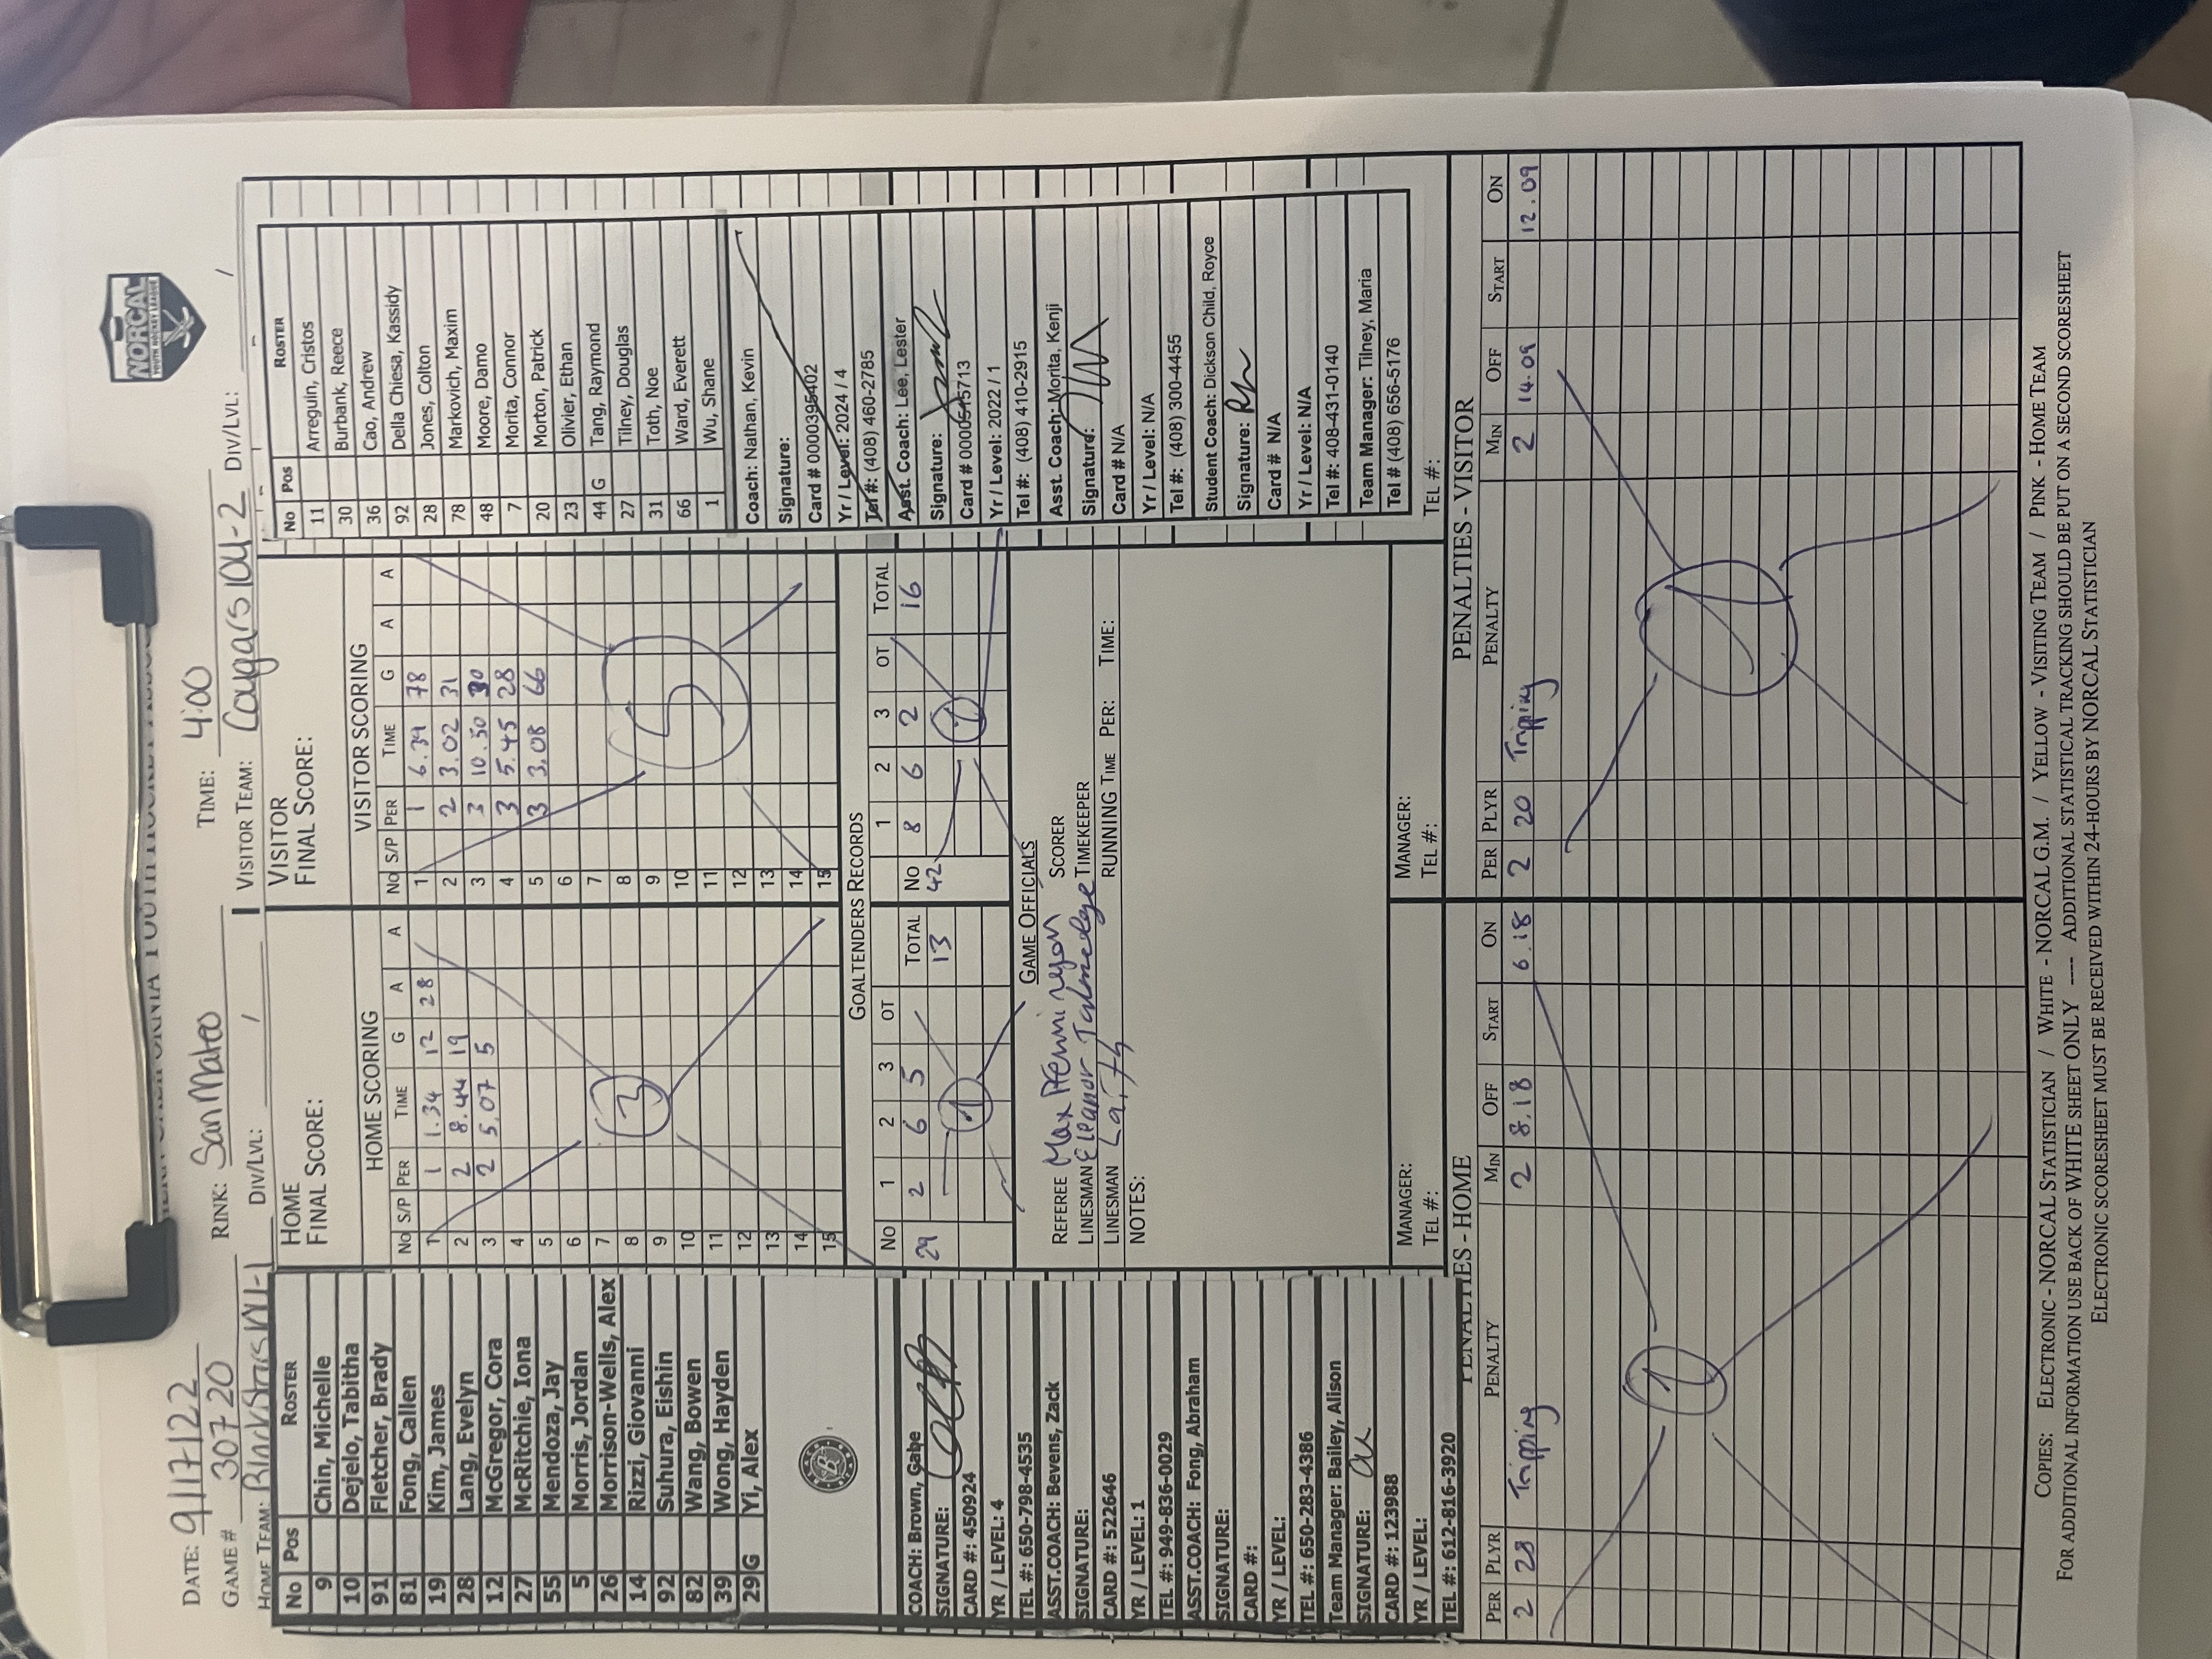 NORCAL
YOUTH HOCKEY LEAGUE
DATE: 9/17/22 RINK: San Mateo TIME: 4:00
GAME # 30720
HOME TEAM: Blackstars 10U-1 DIV/LVL: / VISITOR TEAM: Cougars 10U-2 DIV/LVL: /
No Pos ROSTER
9 Chin, Michelle
10 Dejelo, Tabitha
91 Fletcher, Brady
81 Fong, Callen
19 Kim, James
28 Lang, Evelyn
12 McGregor, Cora
27 McRitchie, Iona
55 Mendoza, Jay
5 Morris, Jordan
26 Morrison-Wells, Alex
14 Rizzi, Giovanni
92 Suhura, Eishin
82 Wang, Bowen
39 Wong, Hayden
29 G Yi, Alex
B
COACH: Brown, Gabe
SIGNATURE:
CARD #: 450924
YR / LEVEL: 4
TEL #: 650-798-4535
ASST.COACH: Bevens, Zack
SIGNATURE:
CARD #: 522646
YR / LEVEL: 1
TEL #: 949-836-0029
ASST.COACH: Fong, Abraham
SIGNATURE:
CARD #:
YR / LEVEL:
TEL #: 650-283-4386
Team Manager: Bailey, Alison
SIGNATURE:
CARD #: 123988
YR / LEVEL:
TEL #: 612-816-3920
HOME
FINAL SCORE:
HOME SCORING
No S/P PER TIME G A A
1 1 1.34 12 28
2 2 8.44 19
3 2 5.07 5
4
5
6
7
8
9
10
11
12
13
14
15
3
VISITOR
FINAL SCORE:
VISITOR SCORING
No S/P PER TIME G A A
1 1 6.39 78
2 2 3.02 31
3 3 10.50 30
4 3 5.45 28
5 3 3.08 66
6
7
8
9
10
11
12
13
14
15
5
GOALTENDERS RECORDS
No 1 2 3 OT TOTAL No 1 2 3 OT TOTAL
29 2 6 5 13 42 8 6 2 16
1 1
GAME OFFICIALS
REFEREE Max SCORER
LINESMAN Eleanor Talmadge TIMEKEEPER
LINESMAN RUNNING TIME PER: TIME:
NOTES:
MANAGER: MANAGER:
TEL #: TEL #:
No Pos ROSTER
11 Arreguin, Cristos
30 Burbank, Reece
36 Cao, Andrew
92 Della Chiesa, Kassidy
28 Jones, Colton
78 Markovich, Maxim
48 Moore, Damo
7 Morita, Connor
20 Morton, Patrick
23 Olivier, Ethan
44 G Tang, Raymond
27 Tilney, Douglas
31 Toth, Noe
66 Ward, Everett
1 Wu, Shane
Coach: Nathan, Kevin
Signature:
Card # 0000395402
Yr / Level: 2024 / 4
Tel #: (408) 460-2785
Asst. Coach: Lee, Lester
Signature:
Card # 0000545713
Yr / Level: 2022 / 1
Tel #: (408) 410-2915
Asst. Coach: Morita, Kenji
Signature:
Card # N/A
Yr / Level: N/A
Tel #: (408) 300-4455
Student Coach: Dickson Child, Royce
Signature:
Card # N/A
Yr / Level: N/A
Tel #: 408-431-0140
Team Manager: Tilney, Maria
Tel # (408) 656-5176
TEL #:
PENALTIES - HOME
PER PLYR PENALTY MIN OFF START ON
2 28 Tripping 2 8.18 6.18
1
PENALTIES - VISITOR
PER PLYR PENALTY MIN OFF START ON
2 20 Tripping 2 14.09 12.09
1
COPIES: ELECTRONIC - NORCAL STATISTICIAN / WHITE - NORCAL G.M. / YELLOW - VISITING TEAM / PINK - HOME TEAM
FOR ADDITIONAL INFORMATION USE BACK OF WHITE SHEET ONLY ---- ADDITIONAL STATISTICAL TRACKING SHOULD BE PUT ON A SECOND SCORESHEET
ELECTRONIC SCORESHEET MUST BE RECEIVED WITHIN 24-HOURS BY NORCAL STATISTICIAN